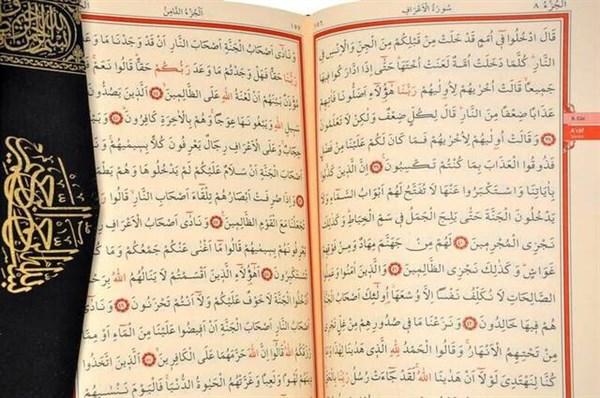 اَلْجُزْءُ ٨ سُورَةُ الْاَعْرَافِ
قَالَ ادْخُلُوا فٓى اُمَمٍ قَدْ خَلَتْ مِنْ قَبْلِكُمْ مِنَ الْجِنِّ وَالْاِنْسِ فِى
النَّارِ كُلَّمَا دَخَلَتْ اُمَّةٌ لَعَنَتْ اُخْتَهَا حَتّٰٓى اِذَا ادَّارَكُوا فٖيهَا
جَمٖيعًا قَالَتْ اُخْرٰيهُمْ لِاُولٰيهُمْ رَبَّنَا هٰٓؤُلَٓاءِ اَضَلُّونَا فَاٰتِهِمْ
عَذَابًا ضِعْفًا مِنَ النَّارِ قَالَ لِكُلٍّ ضِعْفٌ وَلٰكِنْ لَا تَعْلَمُونَ
وَقَالَتْ اُولٰيهُمْ لِاُخْرٰيهُمْ فَمَا كَانَ لَكُمْ عَلَيْنَا مِنْ فَضْلٍ
فَذُوقُوا الْعَذَابَ بِمَا كُنْتُمْ تَكْسِبُونَ اِنَّ الَّذٖينَ كَذَّبُوا
بِاٰيَاتِنَا وَاسْتَكْبَرُوا عَنْهَا لَا تُفَتَّحُ لَهُمْ اَبْوَابُ السَّمَٓاءِ وَلَا
يَدْخُلُونَ الْجَنَّةَ حَتّٰى يَلِجَ الْجَمَلُ فٖى سَمِّ الْخِيَاطِ وَكَذٰلِكَ
نَجْزِى الْمُجْرِمٖينَ لَهُمْ مِنْ جَهَنَّمَ مِهَادٌ وَمِنْ فَوْقِهِمْ
غَوَاشٍ وَكَذٰلِكَ نَجْزِى الظَّالِمٖينَ وَالَّذٖينَ اٰمَنُوا وَعَمِلُوا
الصَّالِحَاتِ لَا نُكَلِّفُ نَفْسًا اِلَّا وُسْعَهَا اُولٰٓئِكَ اَصْحَابُ الْجَنَّةِ
هُمْ فٖيهَا خَالِدُونَ وَنَزَعْنَا مَا فٖى صُدُورِهِمْ مِنْ غِلٍّ تَجْرٖى
مِنْ تَحْتِهِمُ الْاَنْهَارُ وَقَالُوا الْحَمْدُ لِلّٰهِ الَّذٖى هَدٰينَا لِهٰذَا وَمَا
كُنَّا لِنَهْتَدِىَ لَوْلَٓا اَنْ هَدٰينَا اللّٰهُ لَقَدْ جَٓاءَتْ رُسُلُ رَبِّنَا
8. Cüz
A'râf
اَلْجُزْءُ الثَّامِنُ
وَنَادٰٓى اَصْحَابُ الْجَنَّةِ اَصْحَابَ النَّارِ اَنْ قَدْ وَجَدْنَا مَا وَعَدَنَا
رَبُّنَا حَقًّا فَهَلْ وَجَدْتُمْ مَا وَعَدَ رَبُّكُمْ حَقًّا قَالُوا نَعَمْ
مُؤَذِّنٌ بَيْنَهُمْ اَنْ لَعْنَةُ اللّٰهِ عَلَى الظَّالِمٖينَ اَلَّذٖينَ يَصُدُّونَ
سَبٖيلِ اللّٰهِ وَيَبْغُونَهَا عِوَجًا وَهُمْ بِالْاٰخِرَةِ كَافِرُونَ
حِجَابٌ وَعَلَى الْاَعْرَافِ رِجَالٌ يَعْرِفُونَ كُلًّا بِسٖيمٰيهُمْ
اَصْحَابَ الْجَنَّةِ اَنْ سَلَامٌ عَلَيْكُمْ لَمْ يَدْخُلُوهَا وَهُمْ
وَاِذَا صُرِفَتْ اَبْصَارُهُمْ تِلْقَٓاءَ اَصْحَابِ النَّارِ قَالُوا
تَجْعَلْنَا مَعَ الْقَوْمِ الظَّالِمٖينَ وَنَادٰٓى اَصْحَابُ الْاَعْرَافِ
يَعْرِفُونَهُمْ بِسٖيمٰيهُمْ قَالُوا مَٓا اَغْنٰى عَنْكُمْ جَمْعُكُمْ وَمَا
تَسْتَكْبِرُونَ اَهٰٓؤُلَٓاءِ الَّذٖينَ اَقْسَمْتُمْ لَا يَنَالُهُمُ اللّٰهُ
اُدْخُلُوا الْجَنَّةَ لَا خَوْفٌ عَلَيْكُمْ وَلَٓا اَنْتُمْ تَحْزَنُونَ وَنَادٰٓى
النَّارِ اَصْحَابَ الْجَنَّةِ اَنْ اَفٖيضُوا عَلَيْنَا مِنَ الْمَٓاءِ اَوْ مِمَّا
رَزَقَكُمُ اللّٰهُ قَالُٓوا اِنَّ اللّٰهَ حَرَّمَهُمَا عَلَى الْكَافِرٖينَ اَلَّذٖينَ اتَّخَذُوا
دٖينَهُمْ لَهْوًا وَلَعِبًا وَغَرَّتْهُمُ الْحَيٰوةُ الدُّنْيَا فَالْيَوْمَ نَنْسٰيهُمْ